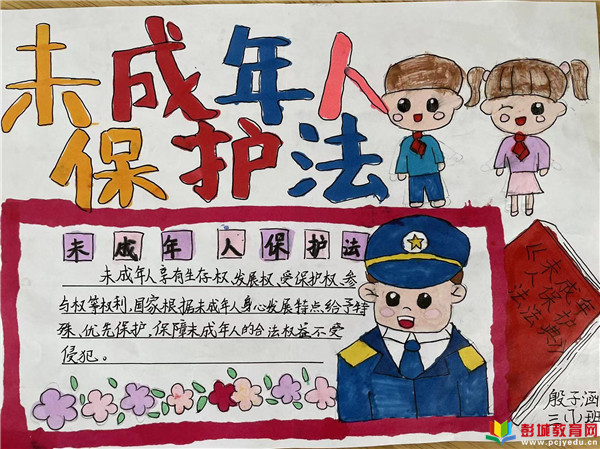 未成年人
保护法
未成年人保护法
未成年人享有生存权、发展权、受保护权、参
与权等权利，国家根据未成年人身心发展特点给予特
殊、优先保护，保障未成年人的合法权益不受
侵犯。
《未成年
人保护
法法典》
殷子涵
三（1）班
彭城教育网
www.pcjyedu.cn